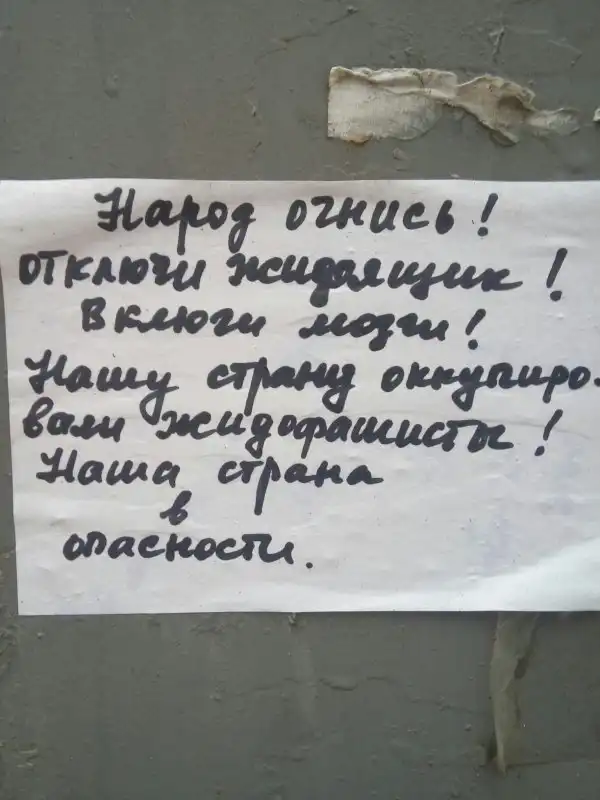 Народ очнись!
отключи жидоящик!
Включи мозги!
Нашу страну оккупиро-
вали жидофашисты!
Наша страна
в
опасности.